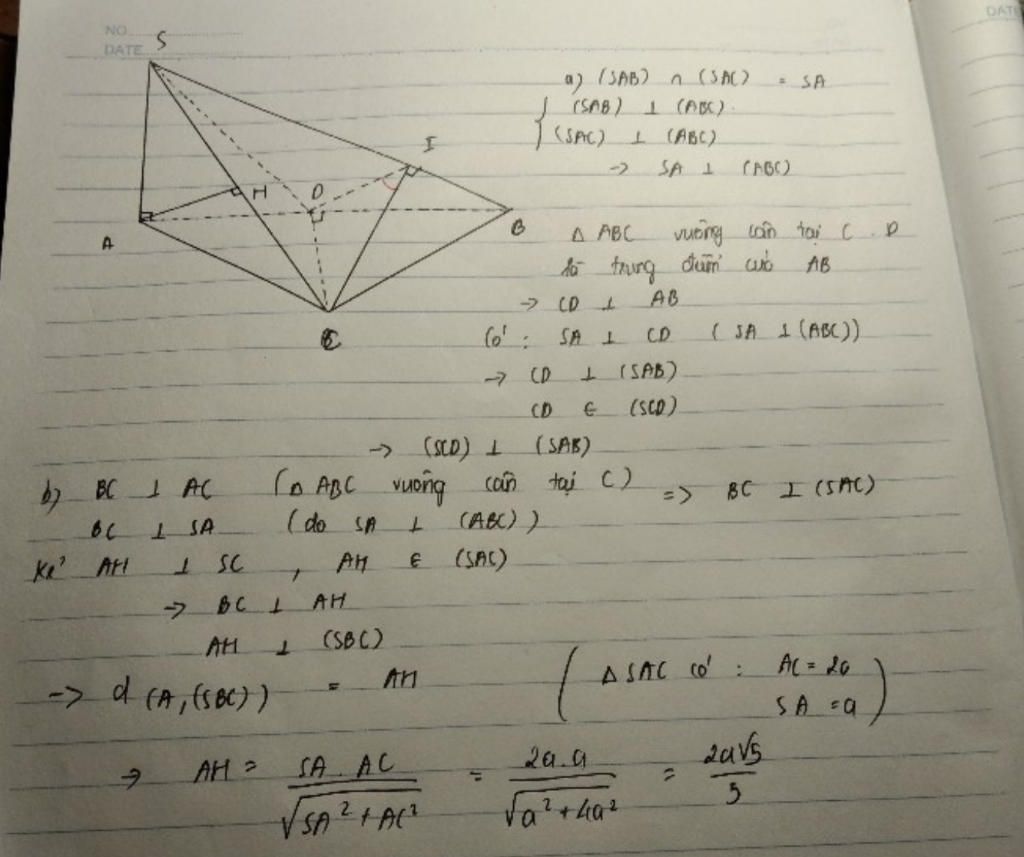 NO
DATE
DATE
S
I
H
D
A
B
C
a) (SAB) ∩ (SAC) = SA
(SAB) ⊥ (ABC).
(SAC) ⊥ (ABC)
→ SA ⊥ (ABC)
Δ ABC vuông cân tại C. D
là trung điểm của AB
→ CD ⊥ AB
Có: SA ⊥ CD (SA ⊥ (ABC))
→ CD ⊥ (SAB)
CD ∈ (SCD)
→ (SCD) ⊥ (SAB)
b) BC ⊥ AC (Δ ABC vuông cân tại C) => BC ⊥ (SAC)
BC ⊥ SA (do SA ⊥ (ABC))
Kẻ AH ⊥ SC, AH ∈ (SAC)
→ BC ⊥ AH
AH ⊥ (SBC)
→ d (A, (SBC)) = AH (Δ SAC có: AC = 2a
SA = a)
→ AH = SA. AC / √(SA² + AC²) = 2a.a / √(a² + 4a²) = 2a√5 / 5